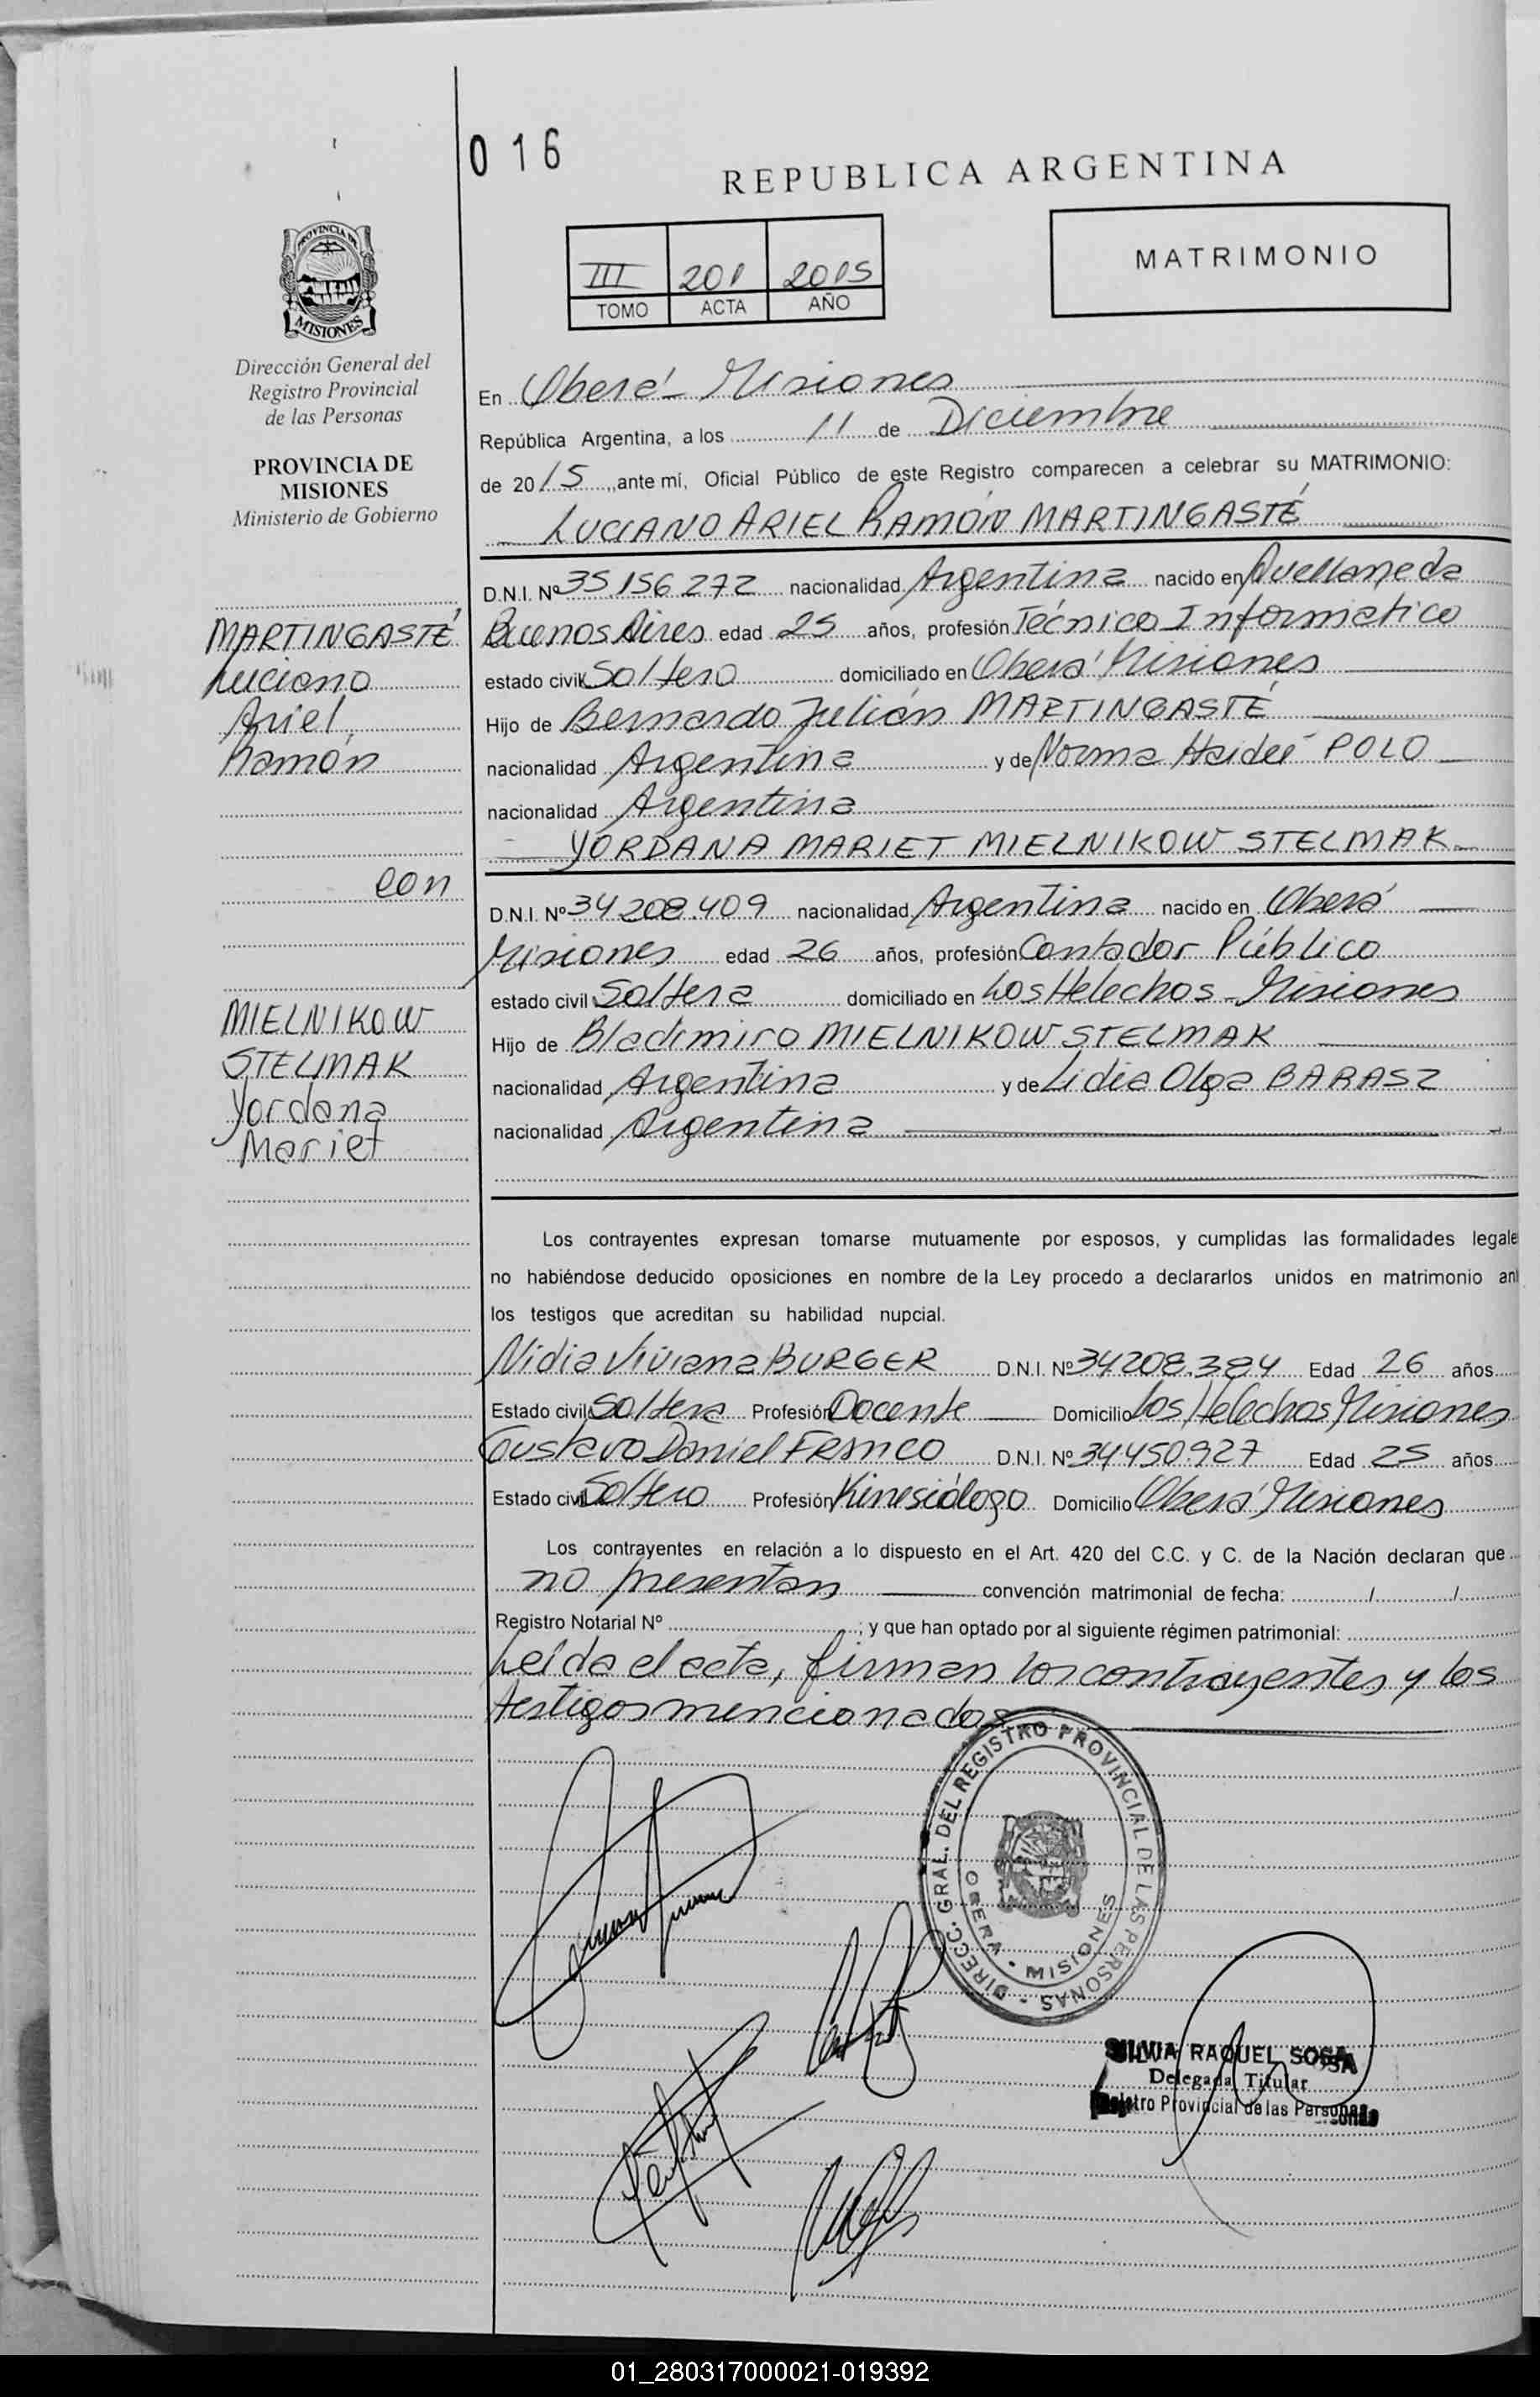 016
REPUBLICA ARGENTINA
III 201 2015
TOMO ACTA AÑO
MATRIMONIO
PROVINCIA DE
MISIONES
Dirección General del
Registro Provincial
de las Personas
PROVINCIA DE
MISIONES
Ministerio de Gobierno
MARTINGASTÉ
Luciano
Ariel
Ramón
con
MIELNIKOW
STELMAK
Yordana
Mariet
En Oberá - Misiones
República Argentina, a los 11 de Diciembre
de 2015, ante mí, Oficial Público de este Registro comparecen a celebrar su MATRIMONIO:
LUCIANO ARIEL RAMÓN MARTINGASTÉ
D.N.I. Nº 35.156.272 nacionalidad Argentina nacido en Avellaneda
Buenos Aires edad 25 años, profesión Técnico Informatico
estado civil Soltero domiciliado en Oberá Misiones
Hijo de Bernardo Julián MARTINGASTÉ
nacionalidad Argentina y de Norma Haideé POLO
nacionalidad Argentina
YORDANA MARIET MIELNIKOW STELMAK
D.N.I. Nº 34.208.409 nacionalidad Argentina nacido en Oberá
Misiones edad 26 años, profesión Contador Público
estado civil Soltera domiciliado en Los Helechos - Misiones
Hijo de Bladimiro MIELNIKOW STELMAK
nacionalidad Argentina y de Lidia Olga BARASZ
nacionalidad Argentina
Los contrayentes expresan tomarse mutuamente por esposos, y cumplidas las formalidades legale
no habiéndose deducido oposiciones en nombre de la Ley procedo a declararlos unidos en matrimonio ant
los testigos que acreditan su habilidad nupcial.
Nidia Viviana BURGER D.N.I. Nº 34.208.384 Edad 26 años
Estado civil Soltera Profesión Docente Domicilio Los Helechos Misiones
Gustavo Daniel FRANCO D.N.I. Nº 34.450.927 Edad 25 años
Estado civil Soltero Profesión Kinesiólogo Domicilio Oberá Misiones
Los contrayentes en relación a lo dispuesto en el Art. 420 del C.C. y C. de la Nación declaran que
no presentan convención matrimonial de fecha: / /
Registro Notarial Nº ; y que han optado por al siguiente régimen patrimonial:
Leída el acta, firman los contrayentes y los
testigos mencionados
DIRECC. GRAL. DEL REGISTRO PROVINCIAL DE LAS PERSONAS
OBERA - MISIONES
SILVIA RAQUEL SOSA
Delegada Titular
Registro Provincial de las Personas
01_280317000021-019392